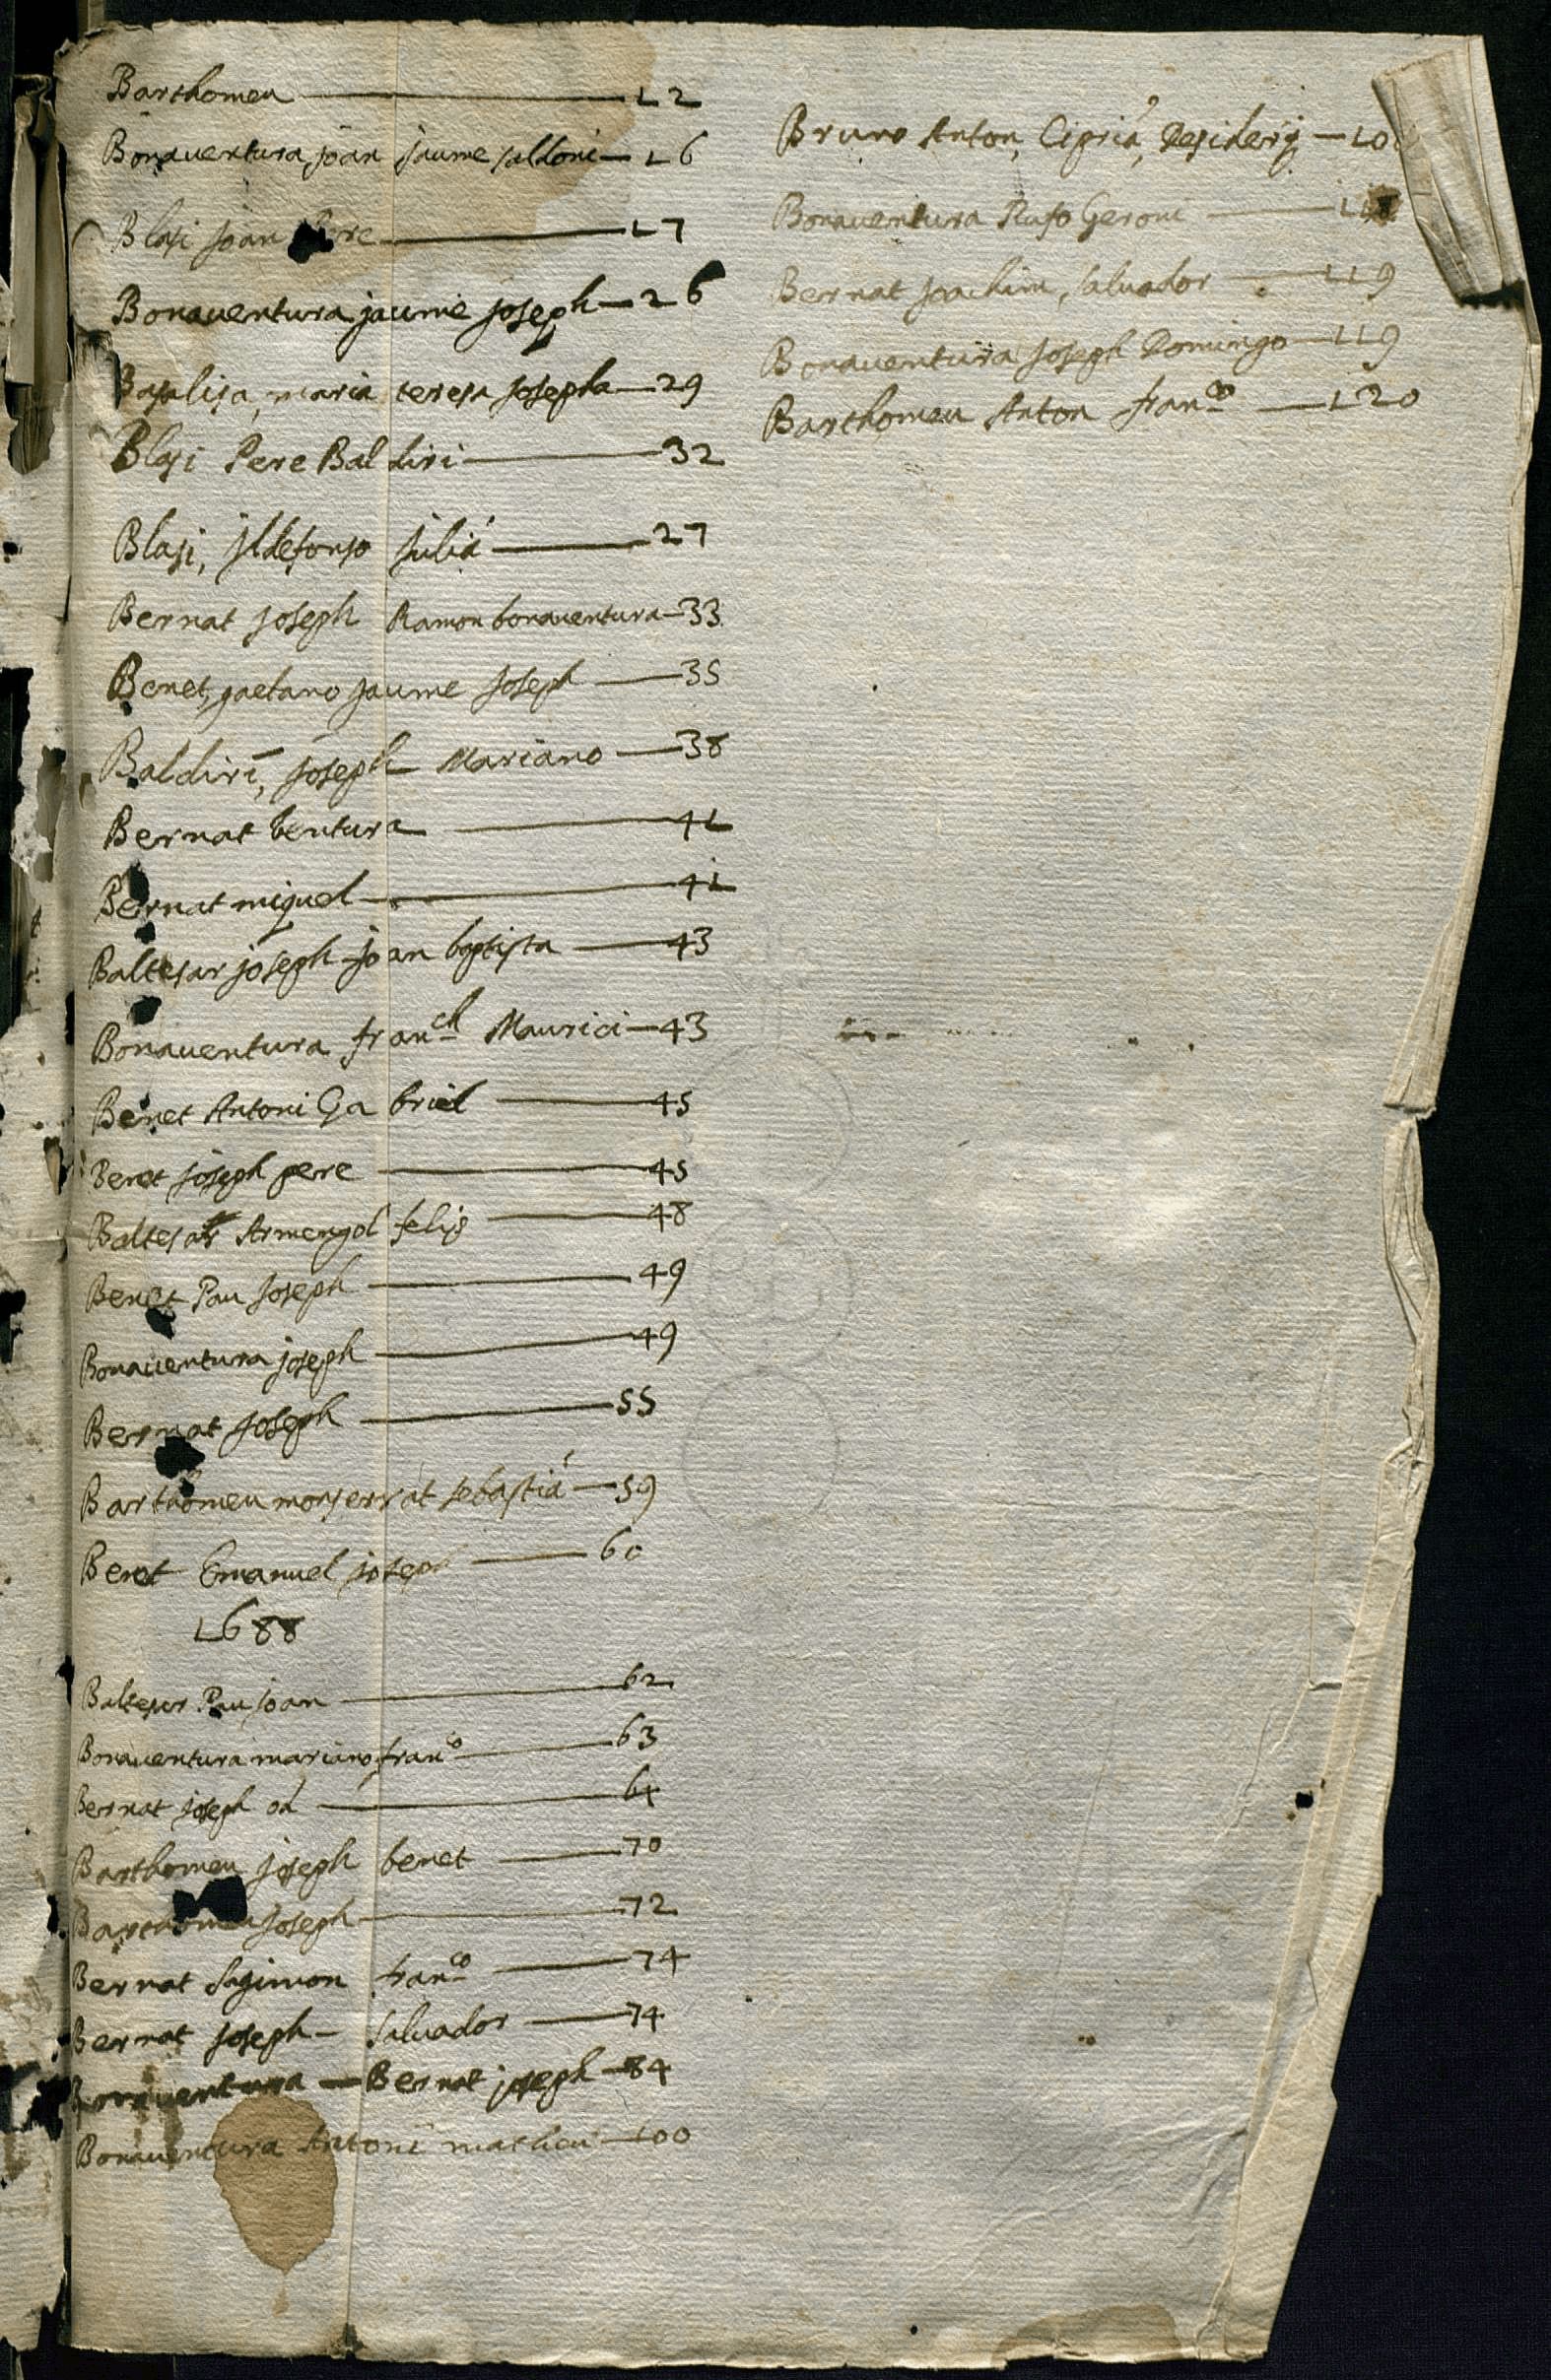 Barthomeu — 12
Bonaventura, joan jaume saldoni — 16
Blasi joan Pere — 17
Bonaventura jaume joseph — 26
Basalisa, maria teresa josepha — 29
Blasi Pere Baldiri — 32
Blasi, Ildefonso Juliá — 27
Bernat joseph Ramon bonaventura — 33
Benet, gaetano jaume joseph — 35
Baldiri, joseph Mariano — 38
Bernat bentura — 41
Bernat miquel — 41
Baltesar joseph joan baptista — 43
Bonaventura franch Maurici — 43
Benet Antoni Gabriel — 45
Benet joseph pere — 45
Baltesar Armengol felis — 48
Benet Pau Joseph — 49
Bonaventura joseph — 49
Bernat joseph — 55
Barthomeu monserrat sebastiá — 59
Benet Emanuel joseph — 60
1688
Baltesar Pau joan — 62
Bonaventura mariano franco — 63
Bernat joseph — 64
Barthomeu joseph benet — 70
Barthomeu joseph — 72
Bernat Sagimon franco — 74
Bernat joseph — Salvador — 74
Bonaventura — Bernat joseph — 84
Bonaventura Antoni matheu — 100
Bruno Anton, Ciprià, Desiderij
Bonaventura Rufo Geroni
Bernat joachim, salvador — 119
Bonaventura joseph Domingo — 119
Barthomeu Anton franco — 120